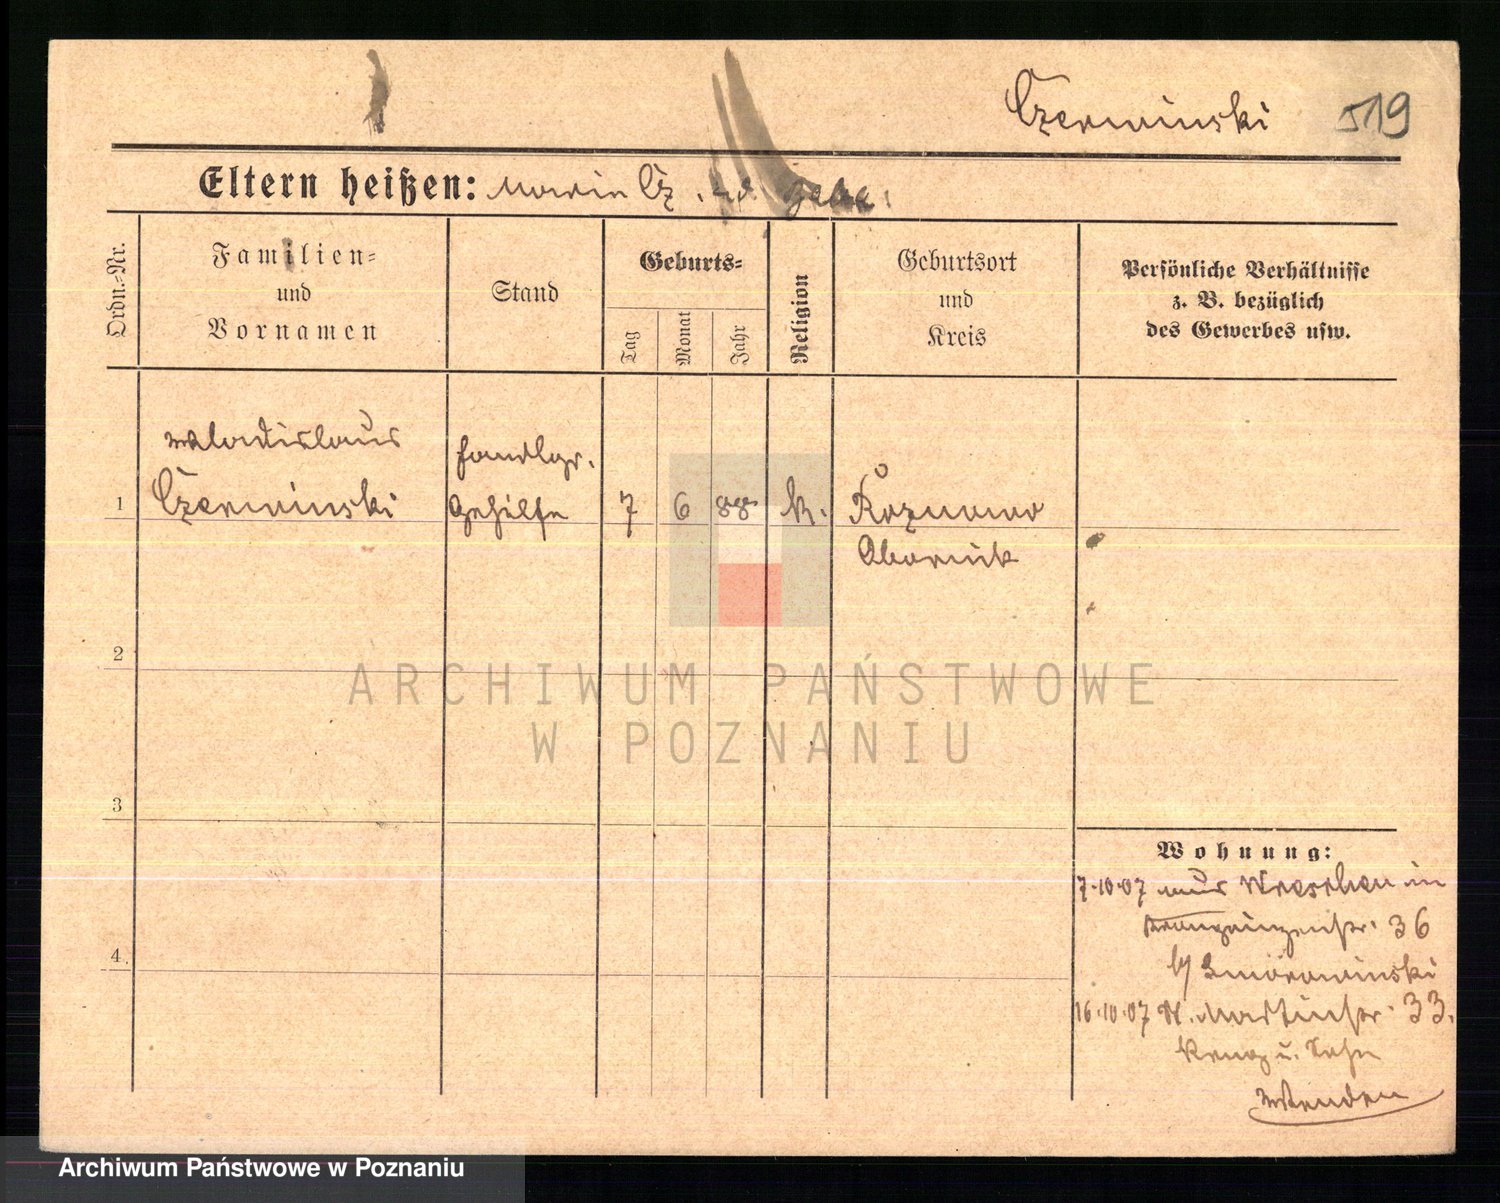 Czerwinski 519
Eltern heißen: Maria Cz.
Ordn.-Nr.
Familien-
und
Vornamen
Stand
Geburts-
Tag
Monat
Jahr
Religion
Geburtsort
und
Kreis
Persönliche Verhältnisse
z. B. bezüglich
des Gewerbes usw.
Wladislaus
Czerwinski
Handlgs.
Gehilfe
1
7
6
88
k.
Rożnowo
Obornik
2
3
4
Wohnung:
7.10.07 aus Wreschen in
Kronprinzenstr. 36
16.10.07 St. Martinstr. 33.
ARCHIWUM PAŃSTWOWE
W POZNANIU
Archiwum Państwowe w Poznaniu